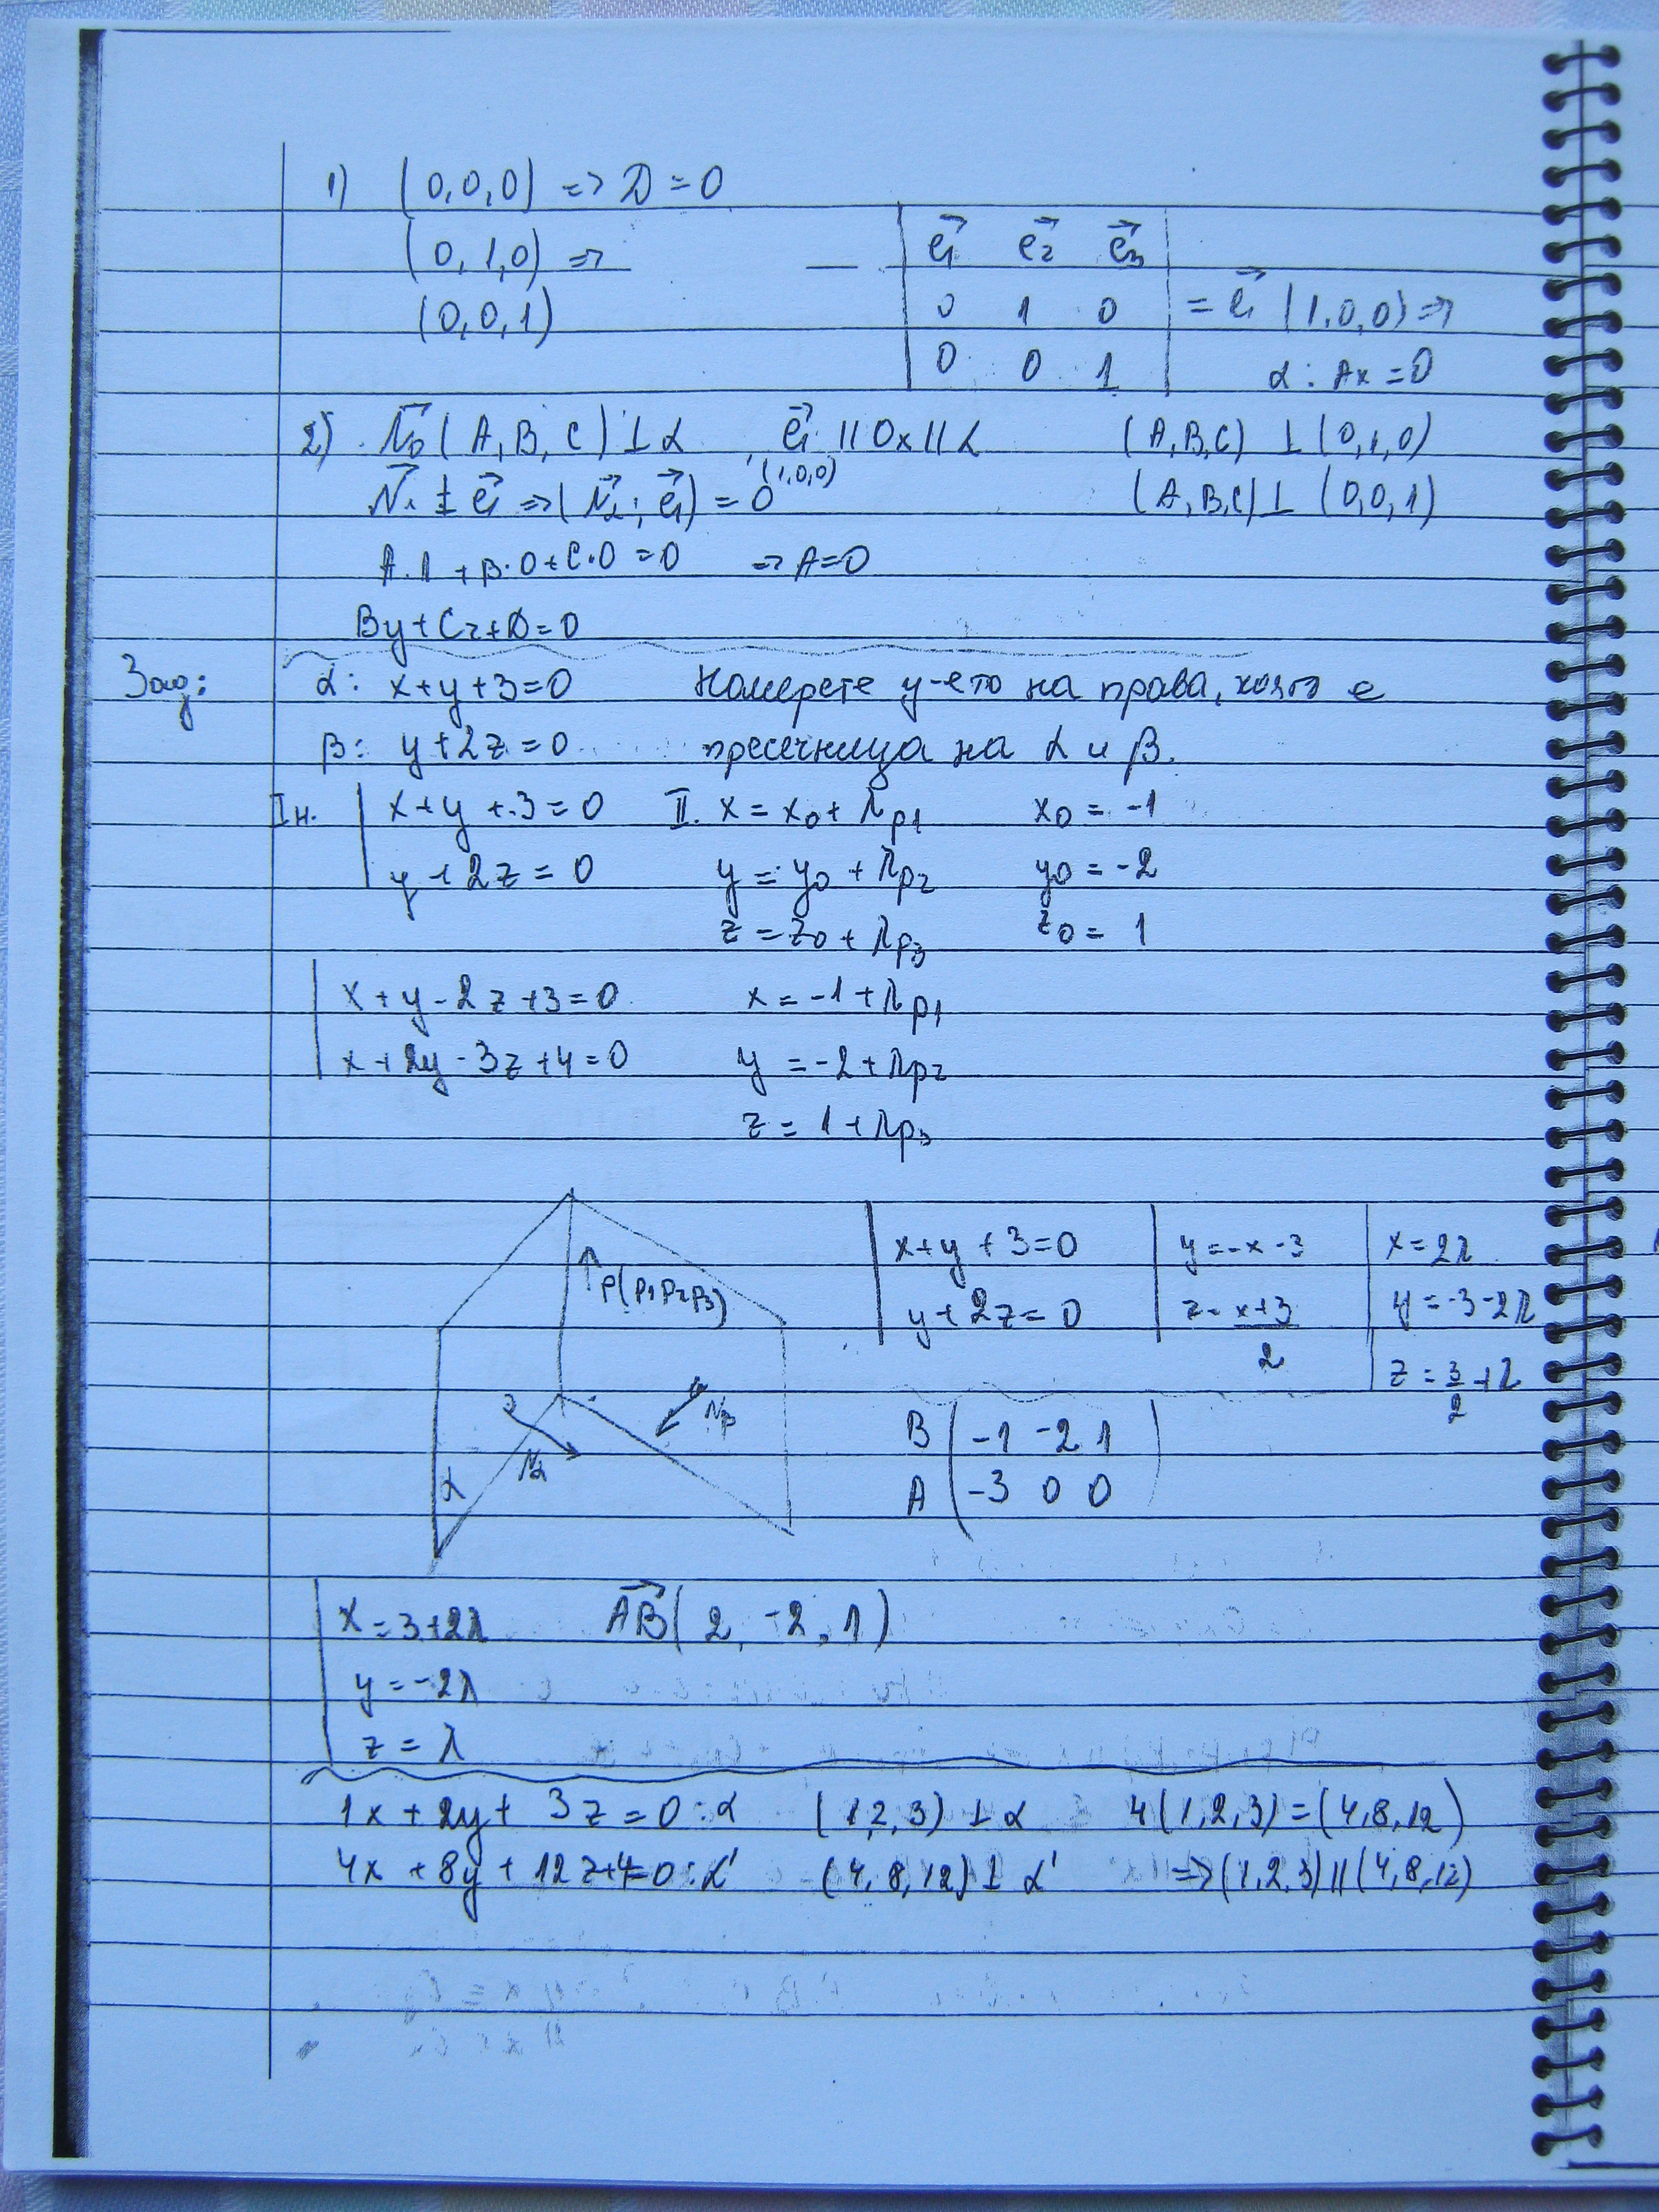 1) (0,0,0) => D=0
(0,1,0) =>
(0,0,1)
— | e₁ e₂ e₃ |
| 0 1 0 | = e₁ (1,0,0) =>
| 0 0 1 | α: Ax=0
2) N₀(A,B,C) ⊥ α , e₁ || Ox || α (A,B,C) ⊥ (0,1,0)
(1,0,0)
⊥ e₁ => (N₂; e₁) = 0 (A,B,C) ⊥ (0,0,1)
A.1 + B.0 + C.0 = 0 => A=0
By+Cz+D=0
Зад: α: x+y+3=0 Намерете у-ето на права, която е
β: y+2z=0 пресечница на α и β.
I н. | x+y+3=0 II. x=x₀+λp₁ x₀=-1
| y+2z=0 y=y₀+λp₂ y₀=-2
z=z₀+λp₃ z₀=1
| x+y-2z+3=0 x=-1+λp₁
| x+2y-3z+4=0 y=-2+λp₂
z=1+λp₃
p(p₁p₂p₃)
Nβ
Nα
α
| x+y+3=0 | y=-x-3 | x=2λ
| y+2z=0 | z=x+3/2 | y=-3-2λ
| z=3/2+λ
B (-1 -2 1)
A (-3 0 0)
| x=3+2λ AB(2,-2,1)
| y=-2λ
| z=λ
1x+2y+3z=0:α (1,2,3) ⊥ α 4(1,2,3)=(4,8,12)
4x+8y+12z+4=0:α' (4,8,12) ⊥ α' => (1,2,3) || (4,8,12)